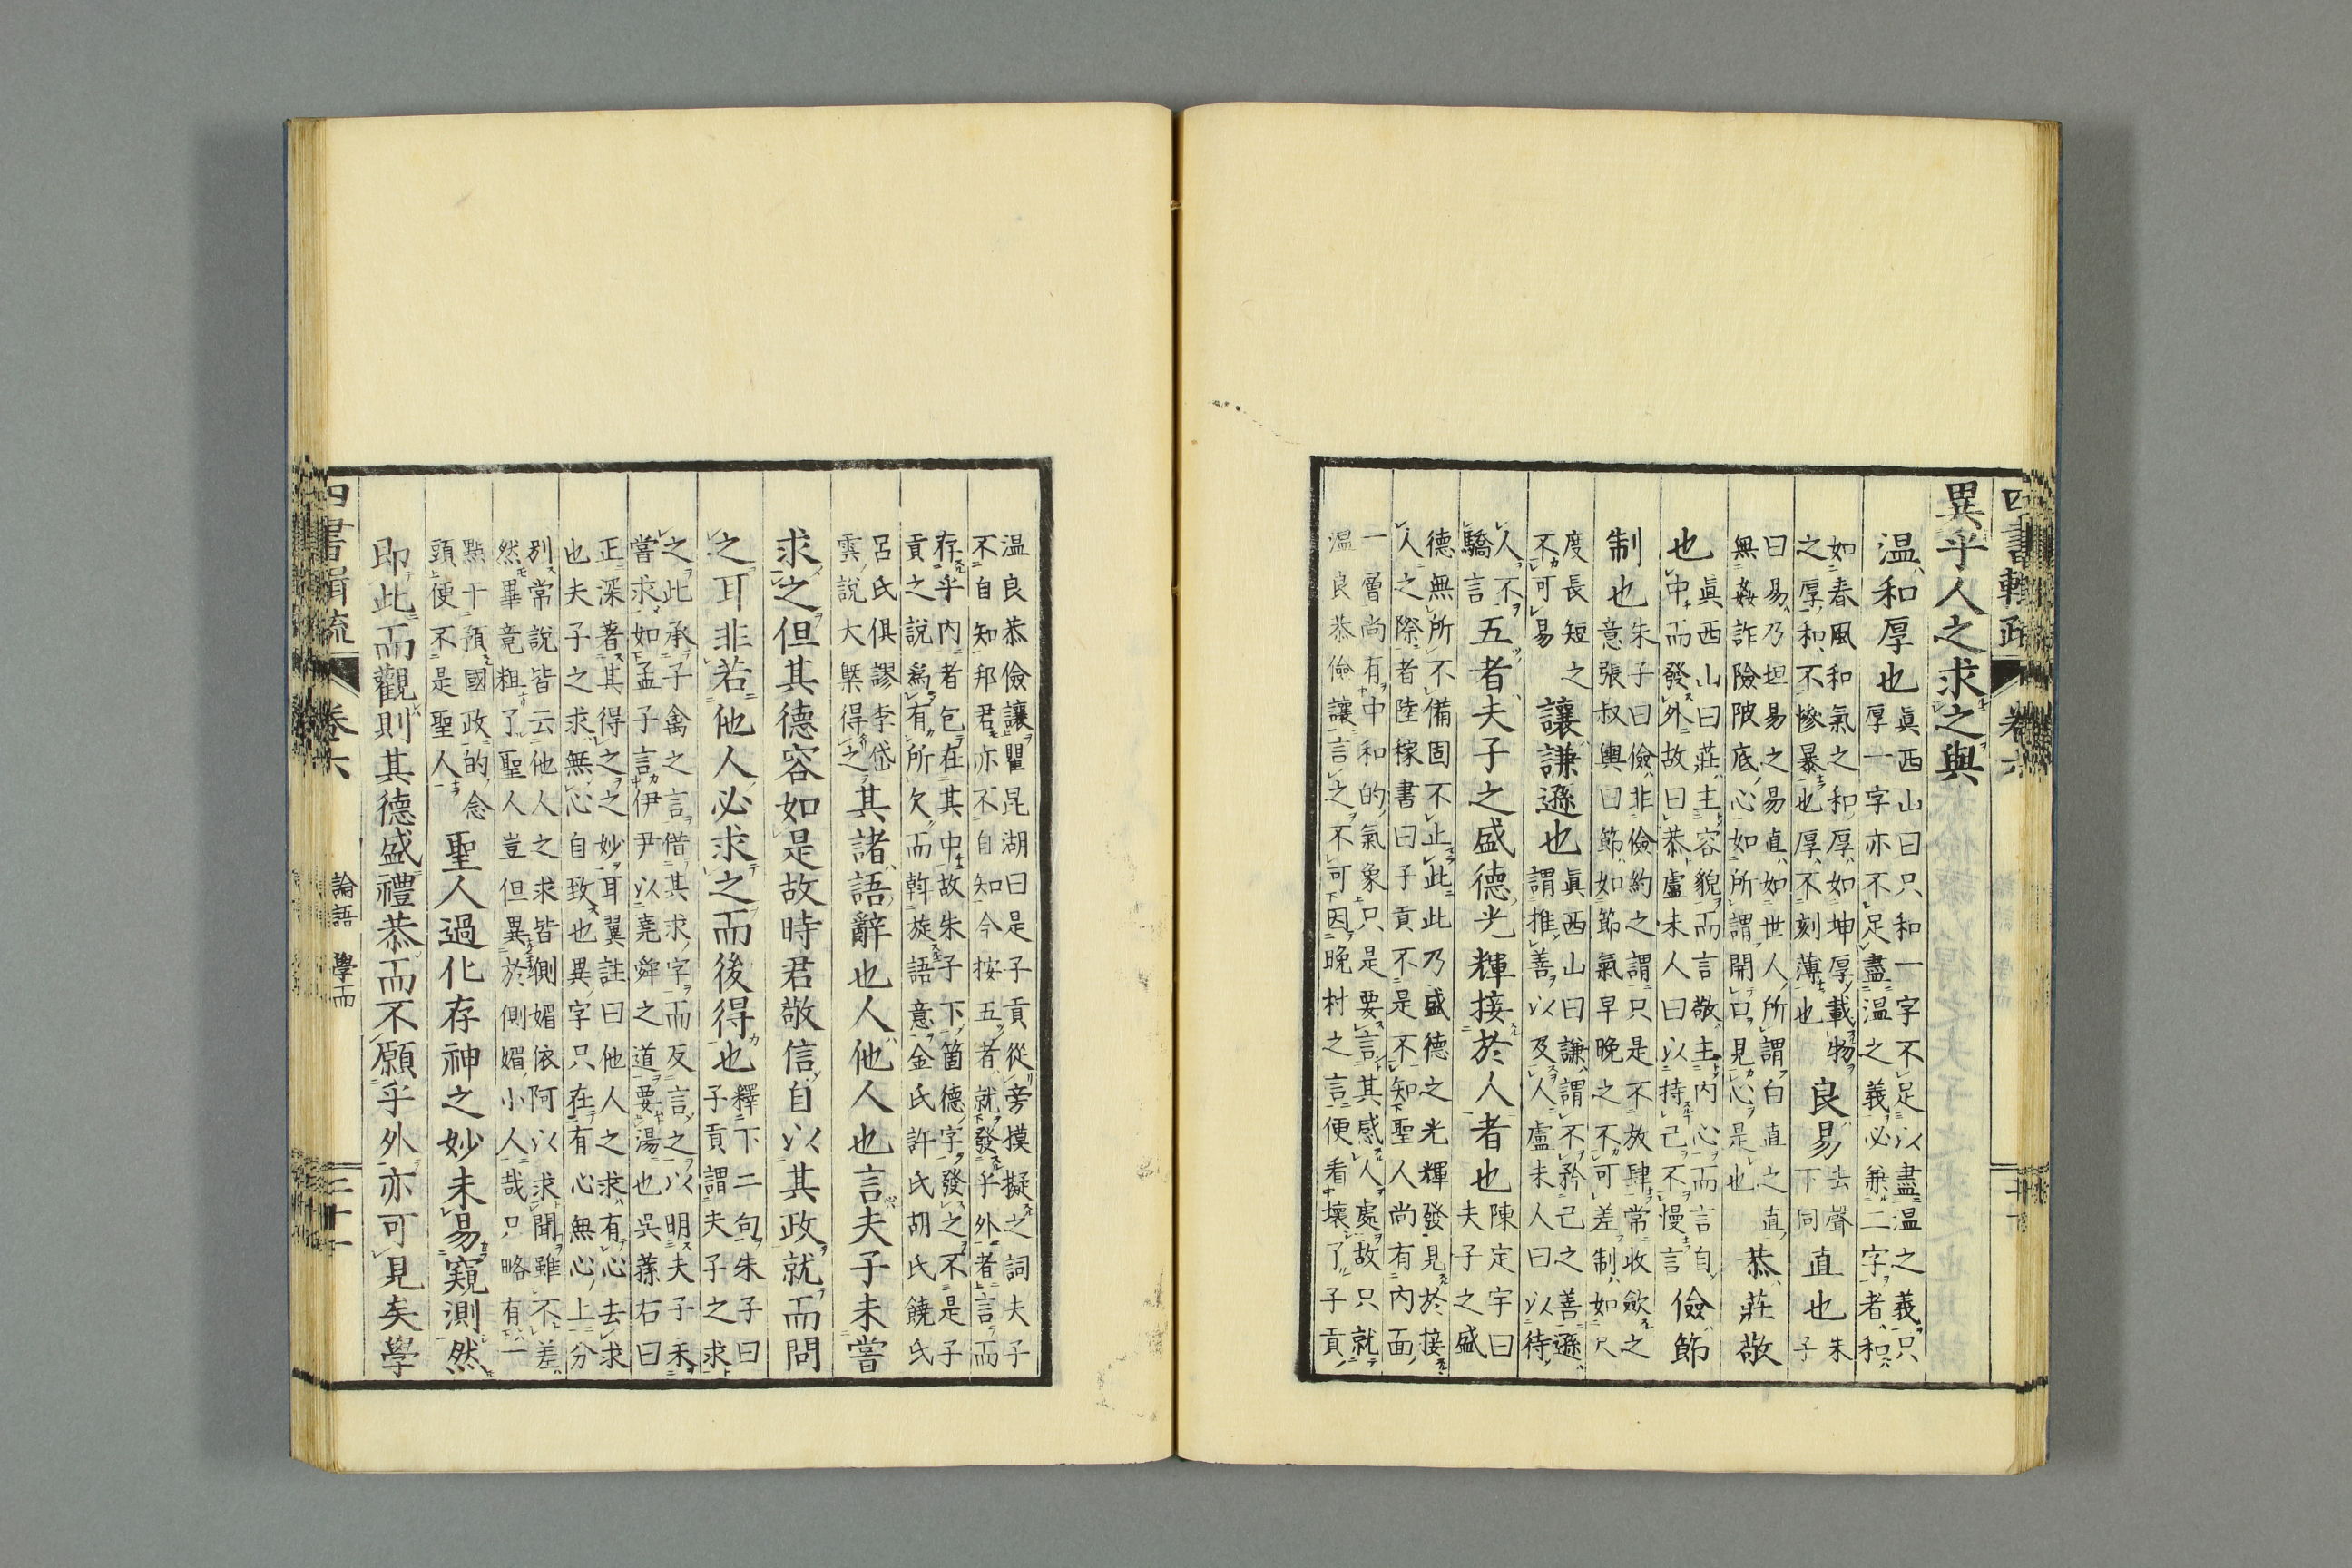 異乎人之求之與
温和厚也
眞西山曰只和一字不足以盡温之義只
厚一字亦不足盡温之義必兼二字者和
如春風和氣之和厚如坤厚載物
之厚和不慘暴也厚不刻薄也
良易
去聲
下同
直也
朱
子
曰易乃坦易之易直如世人所謂白直之直
無姦詐險陂底心如所謂開口見心是也
恭莊敬
也
眞西山曰莊主容貌而言敬主内心而言自
中而發外故曰恭盧未人曰以持己不慢言
儉節
制也
朱子曰儉非儉約之謂只是不放肆常收歛之
意張叔輿曰節如節氣早晚之不可差制如尺
度長短之
不可易
讓謙遜也
眞西山曰謙謂不矜己之善遜
謂推善以及人盧未人曰以待
人不
驕言
五者夫子之盛德光輝接於人者也
陳定宇曰
夫子之盛
德無所不備固不止此此乃盛德之光輝發見於接
人之際者陸稼書曰子貢不是不知聖人尚有内面
一層尚有中和的氣象只是要言其感人處故只就
温良恭儉讓言之不可因晚村之言便看壞了子貢
温良恭儉讓瞿昆湖曰是子貢從旁摸擬之詞夫子
不自知邦君亦不自知今按五者就發乎外者言而
存乎内者包在其中故朱子下箇德字發之不是子
貢之說爲有所欠而斡旋語意金氏許氏胡氏饒氏
呂氏俱謬李岱
雲說大槩得之
其諸語辭也人他人也言夫子未嘗
求之但其德容如是故時君敬信自以其政就而問
之耳非若他人必求之而後得也
釋下二句朱子曰
子貢謂夫子之求
之此承子禽之言借其求字而反言之以明夫子未
嘗求如孟子言伊尹以堯舜之道要湯也吳蓀右曰
正深著其得之之妙耳翼註曰他人之求有心去求
也夫子之求無心自致也異字只在有心無心上分
別常說皆云他人之求皆側媚依阿以求聞雖不差
然畢竟粗了聖人豈但異於側媚小人哉只略有一
點干預國政的念
頭便不是聖人
聖人過化存神之妙未易窺測然
即此而觀則其德盛禮恭而不願乎外亦可見矣學
卷六
論語 學而